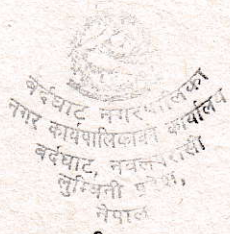 बर्दघाट नगरपालिका
नगर कार्यपालिकाको कार्यालय
बर्दघाट, नवलपरासी
लुम्बिनी प्रदेश,
नेपाल